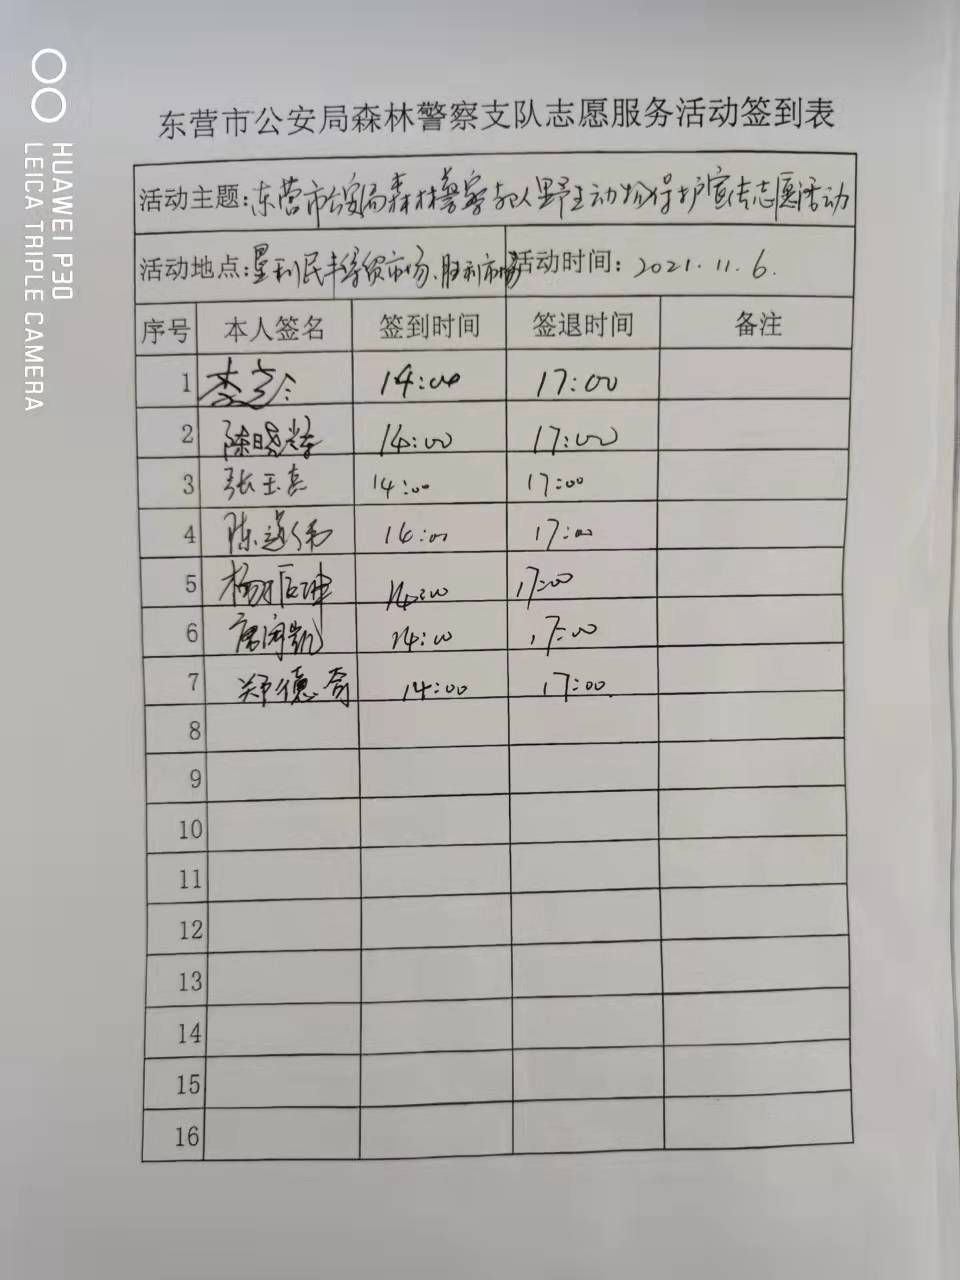 东营市公安局森林警察支队志愿服务活动签到表
活动主题:东营市公安局森林警察支队野生动物保护宣传志愿活动
活动地点:垦利民丰综贸市场、胜利市场 活动时间: 2021.11.6.
序号 本人签名 签到时间 签退时间 备注
1 李 14:00 17:00
2 陈晓 14:00 17:00
3 张玉 14:00 17:00
4 陈 14:00 17:00
5 杨 坤 14:00 17:00
6 凯 14:00 17:00
7 郑德奇 14:00 17:00
8
9
10
11
12
13
14
15
16
HUAWEI P30
LEICA TRIPLE CAMERA